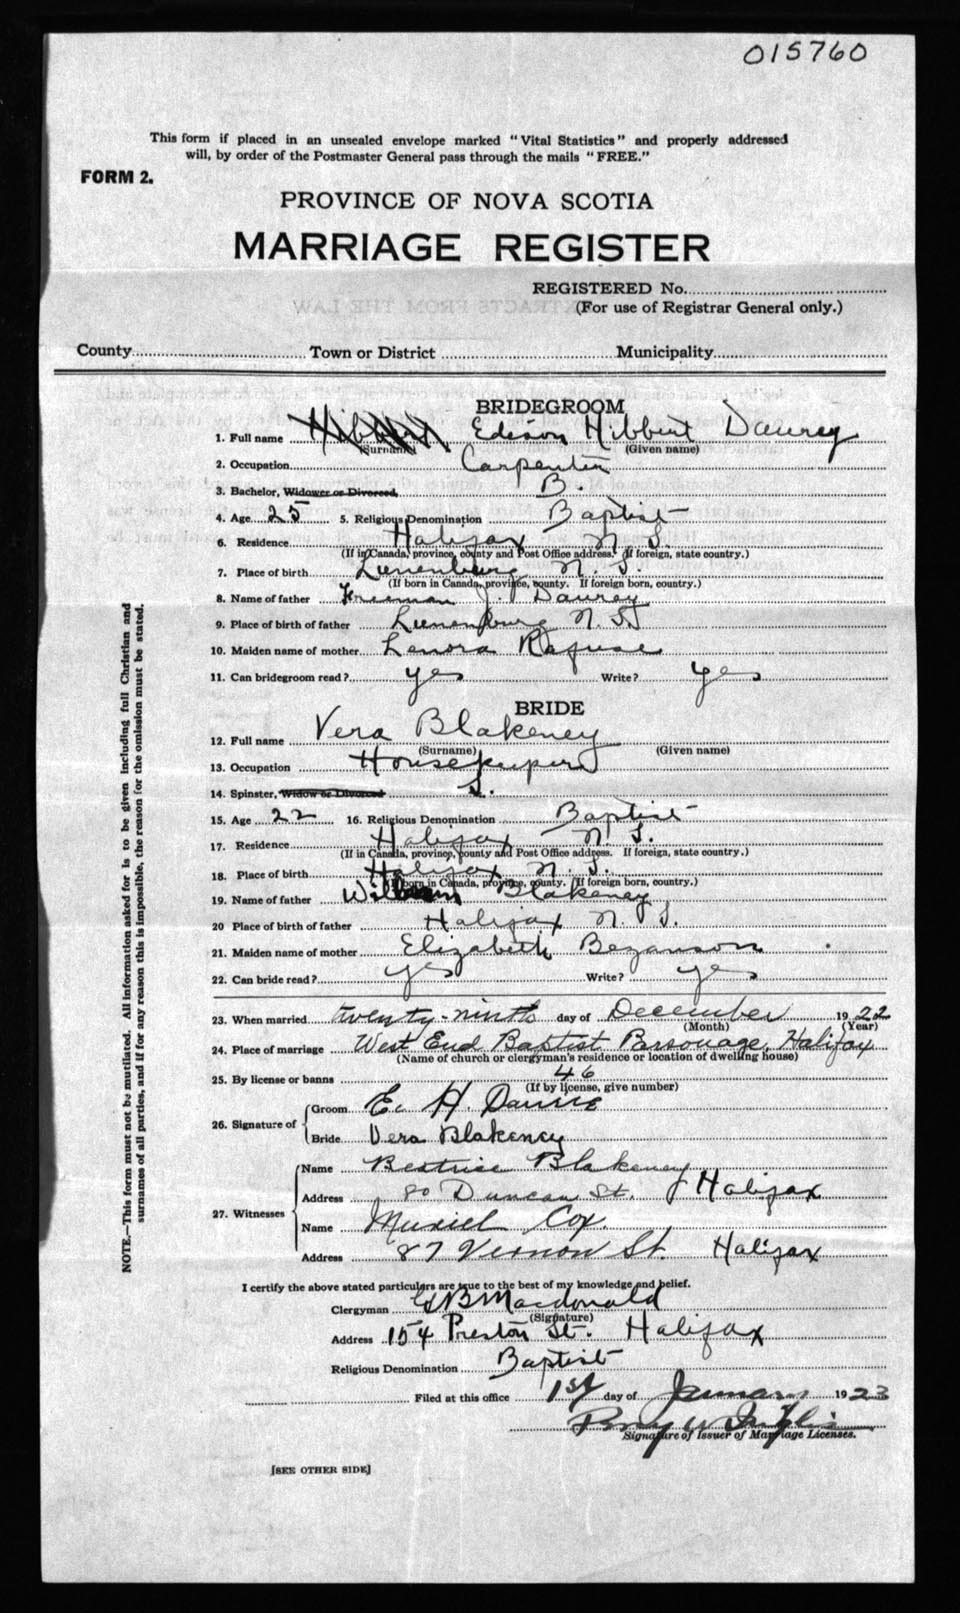 015760
This form if placed in an unsealed envelope marked "Vital Statistics" and properly addressed
will, by order of the Postmaster General pass through the mails "FREE."
FORM 2.
PROVINCE OF NOVA SCOTIA
MARRIAGE REGISTER
REGISTERED No.
(For use of Registrar General only.)
County Town or District Municipality
BRIDEGROOM
1. Full name Hibbert Edison Hibbert Daurey
(Surname) (Given name)
2. Occupation Carpenter
3. Bachelor, Widower or Divorced, B.
4. Age 25 5. Religious Denomination Baptist
6. Residence Halifax N. S.
(If in Canada, province, county and Post Office address. If foreign, state country.)
7. Place of birth Lunenburg N. S.
(If born in Canada, province, county. If foreign born, country.)
8. Name of father Freeman J. Daurey
9. Place of birth of father Lunenburg N. S.
10. Maiden name of mother Lenora Rafuse
11. Can bridegroom read? yes Write? yes
BRIDE
12. Full name Vera Blakeney
(Surname) (Given name)
13. Occupation Housekeeper
14. Spinster, Widow or Divorced S.
15. Age 22 16. Religious Denomination Baptist
17. Residence Halifax N. S.
(If in Canada, province, county and Post Office address. If foreign, state country.)
18. Place of birth Halifax N. S.
(If born in Canada, province, county. If foreign born, country.)
19. Name of father Blakeney
20 Place of birth of father Halifax N. S.
21. Maiden name of mother Elizabeth Bezanson
22. Can bride read? yes Write? yes
23. When married twenty-ninth day of December 1922
(Month) (Year)
24. Place of marriage West End Baptist Parsonage, Halifax
(Name of church or clergyman's residence or location of dwelling house)
25. By license or banns 46
(If by license, give number)
26. Signature of
Groom E. H.
Bride Vera Blakeney
27. Witnesses
Name Beatrice Blakeney
Address 80 Duncan St. Halifax
Name Muriel Cox.
Address 87 Vernon St. Halifax
I certify the above stated particulars are true to the best of my knowledge and belief.
Clergyman Macdonald
(Signature)
Address 154 Preston St. Halifax
Religious Denomination Baptist
Filed at this office 1st day of January 1923
Signature of Issuer of Marriage Licenses.
[SEE OTHER SIDE]
NOTE.—This form must not be mutilated. All information asked for is to be given including full Christian and
surnames of all parties, and if for any reason this is impossible, the reason for the omission must be stated.